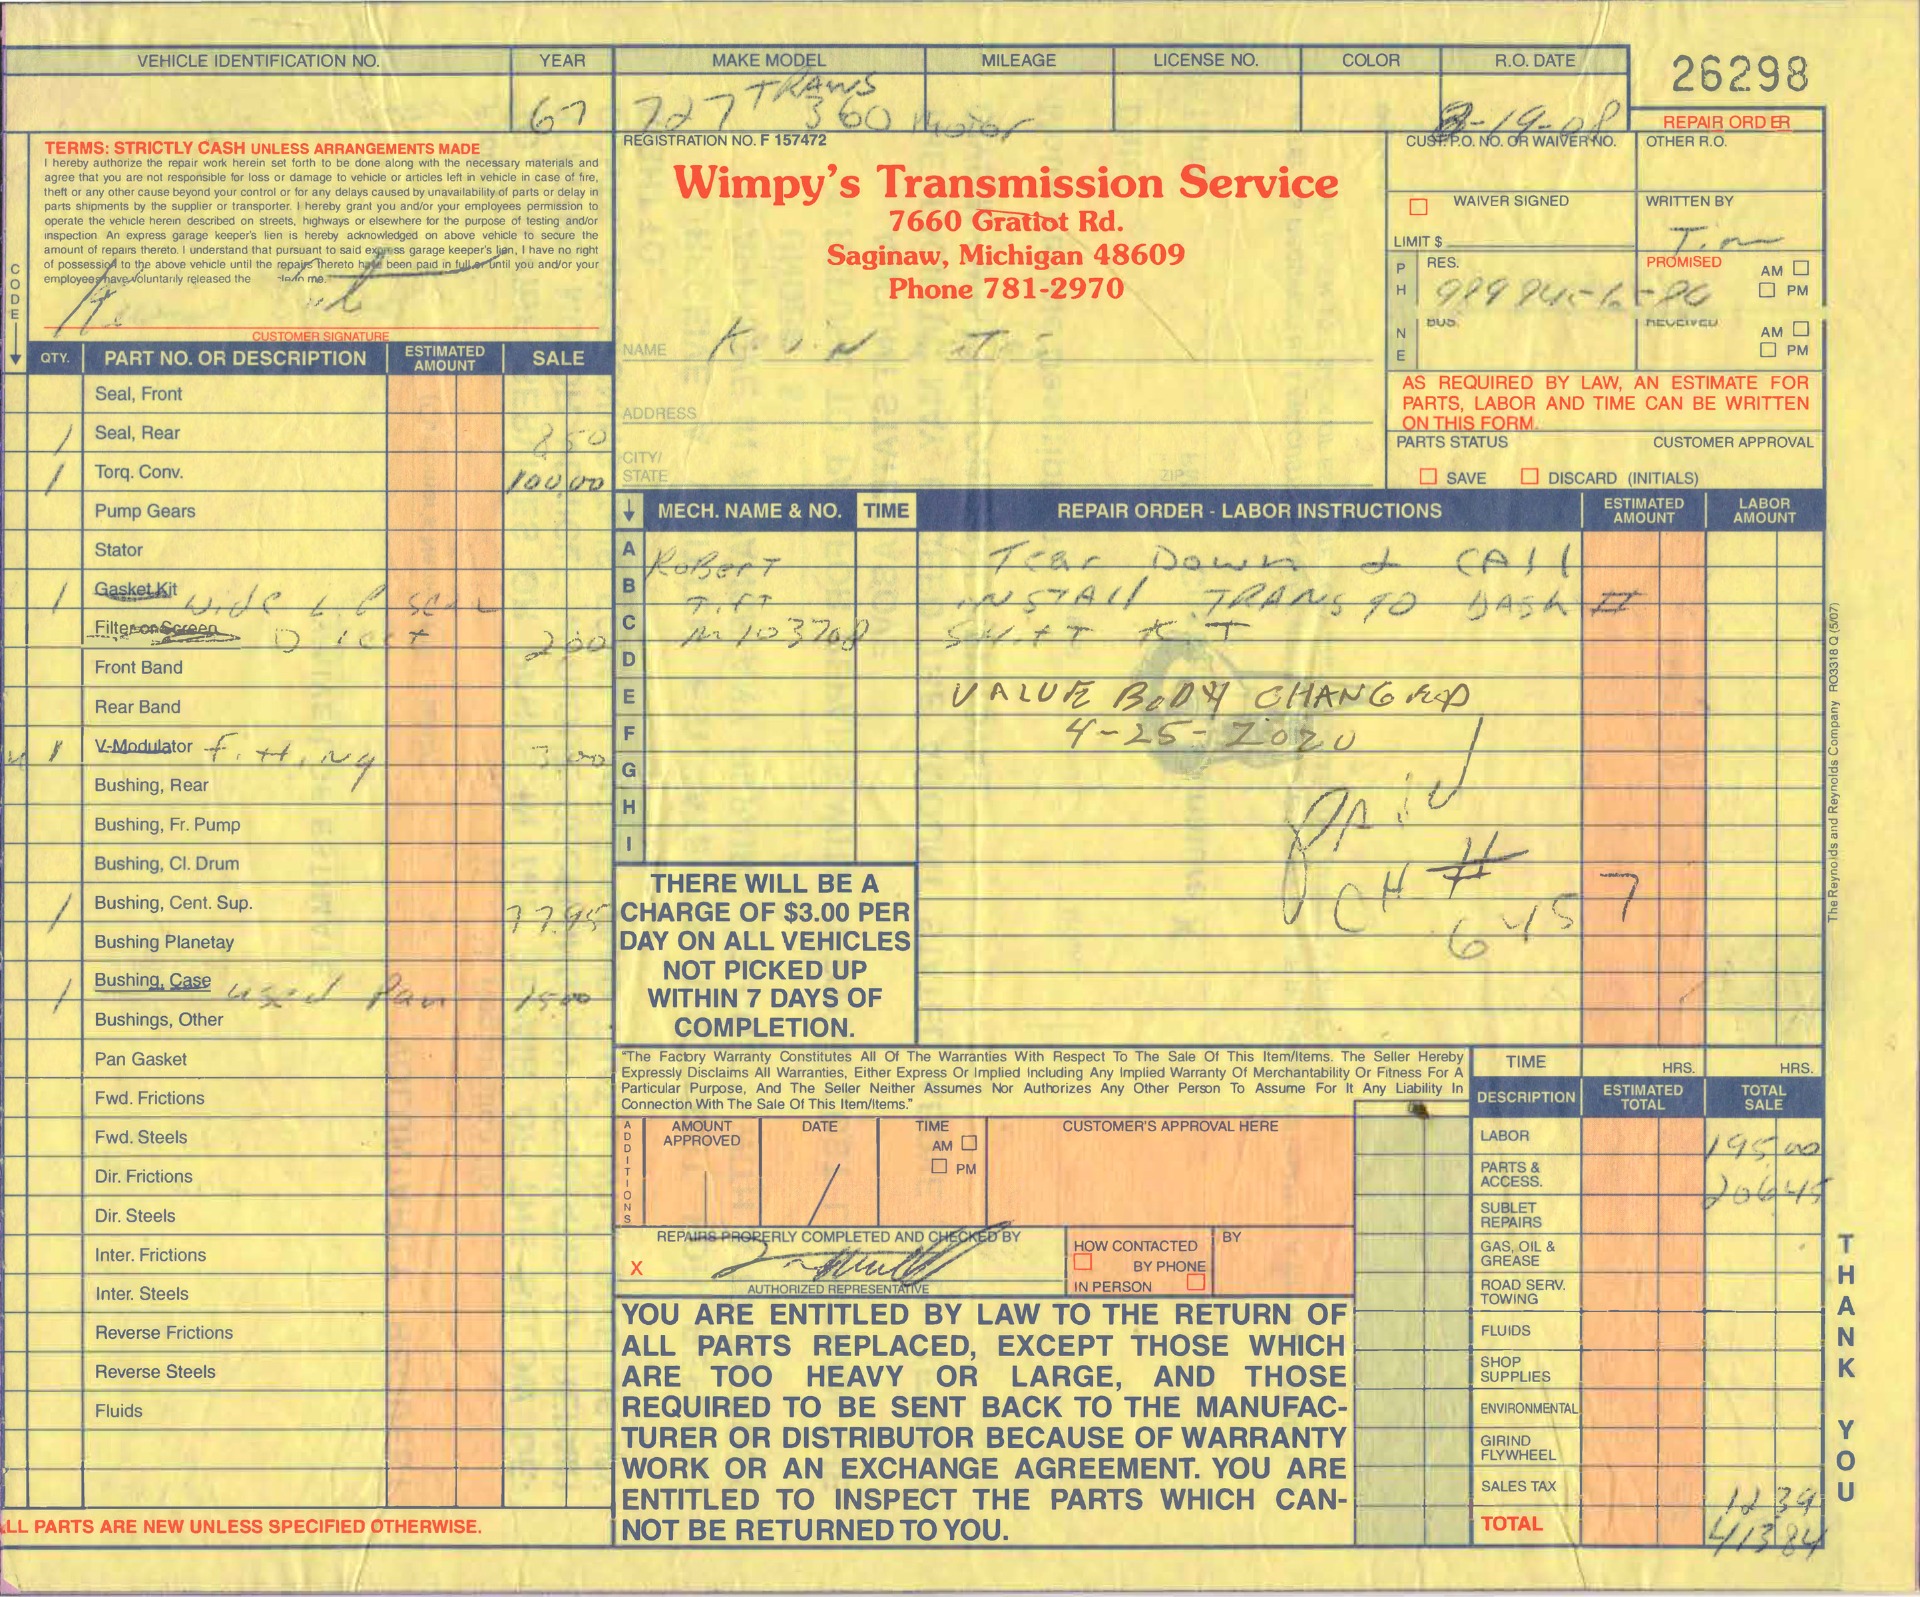 VEHICLE IDENTIFICATION NO. YEAR MAKE MODEL MILEAGE LICENSE NO. COLOR R.O. DATE
26298
67 727 TRANS 360 Motor 8-19-08
REPAIR ORDER
TERMS: STRICTLY CASH UNLESS ARRANGEMENTS MADE
I hereby authorize the repair work herein set forth to be done along with the necessary materials and
agree that you are not responsible for loss or damage to vehicle or articles left in vehicle in case of fire,
theft or any other cause beyond your control or for any delays caused by unavailability of parts or delay in
parts shipments by the supplier or transporter. I hereby grant you and/or your employees permission to
operate the vehicle herein described on streets, highways or elsewhere for the purpose of testing and/or
inspection. An express garage keeper's lien is hereby acknowledged on above vehicle to secure the
amount of repairs thereto. I understand that pursuant to said express garage keeper's lien, I have no right
of possession to the above vehicle until the repairs thereto have been paid in full or until you and/or your
employees have voluntarily released the me.
CUSTOMER SIGNATURE
REGISTRATION NO. F 157472
Wimpy's Transmission Service
7660 Gratiot Rd.
Saginaw, Michigan 48609
Phone 781-2970
NAME
ADDRESS
CITY/
STATE ZIP
CUST. P.O. NO. OR WAIVER NO. OTHER R.O.
WAIVER SIGNED WRITTEN BY
LIMIT $ Tim
PH NE
RES. PROMISED AM
PM
BUS. RECEIVED AM
PM
AS REQUIRED BY LAW, AN ESTIMATE FOR
PARTS, LABOR AND TIME CAN BE WRITTEN
ON THIS FORM.
PARTS STATUS CUSTOMER APPROVAL
SAVE DISCARD (INITIALS)
CODE
QTY. PART NO. OR DESCRIPTION ESTIMATED AMOUNT SALE
Seal, Front
1 Seal, Rear 850
1 Torq. Conv. 100.00
Pump Gears
Stator
1 Gasket Kit wide
Filter or Screen 200
Front Band
Rear Band
1 V-Modulator Fitting 3.00
Bushing, Rear
Bushing, Fr. Pump
Bushing, Cl. Drum
1 Bushing, Cent. Sup. 77.95
Bushing Planetay
1 Bushing, Case used Pan 15.00
Bushings, Other
Pan Gasket
Fwd. Frictions
Fwd. Steels
Dir. Frictions
Dir. Steels
Inter. Frictions
Inter. Steels
Reverse Frictions
Reverse Steels
Fluids
LL PARTS ARE NEW UNLESS SPECIFIED OTHERWISE.
MECH. NAME & NO. TIME REPAIR ORDER - LABOR INSTRUCTIONS ESTIMATED AMOUNT LABOR AMOUNT
A Robert Tear Down & CAll
B Tift INSTAll TRANS GO DASH II
C M103708 Shift KiT
D
E VALUE BODY CHANGED
F 4-25-2020
G
H PAID
I CH # 6457
THERE WILL BE A
CHARGE OF $3.00 PER
DAY ON ALL VEHICLES
NOT PICKED UP
WITHIN 7 DAYS OF
COMPLETION.
"The Factory Warranty Constitutes All Of The Warranties With Respect To The Sale Of This Item/Items. The Seller Hereby
Expressly Disclaims All Warranties, Either Express Or Implied Including Any Implied Warranty Of Merchantability Or Fitness For A
Particular Purpose, And The Seller Neither Assumes Nor Authorizes Any Other Person To Assume For It Any Liability In
Connection With The Sale Of This Item/Items."
ADDITIONS
AMOUNT APPROVED DATE TIME AM PM CUSTOMER'S APPROVAL HERE
REPAIRS PROPERLY COMPLETED AND CHECKED BY
X
AUTHORIZED REPRESENTATIVE
HOW CONTACTED BY
BY PHONE
IN PERSON
YOU ARE ENTITLED BY LAW TO THE RETURN OF
ALL PARTS REPLACED, EXCEPT THOSE WHICH
ARE TOO HEAVY OR LARGE, AND THOSE
REQUIRED TO BE SENT BACK TO THE MANUFAC-
TURER OR DISTRIBUTOR BECAUSE OF WARRANTY
WORK OR AN EXCHANGE AGREEMENT. YOU ARE
ENTITLED TO INSPECT THE PARTS WHICH CAN-
NOT BE RETURNED TO YOU.
TIME HRS. HRS.
DESCRIPTION ESTIMATED TOTAL TOTAL SALE
LABOR 195 00
PARTS & ACCESS. 206 45
SUBLET REPAIRS
GAS, OIL & GREASE
ROAD SERV. TOWING
FLUIDS
SHOP SUPPLIES
ENVIRONMENTAL
GIRIND FLYWHEEL
SALES TAX 12 39
TOTAL 413 84
THANK YOU
The Reynolds and Reynolds Company RO3318 Q (5/07)